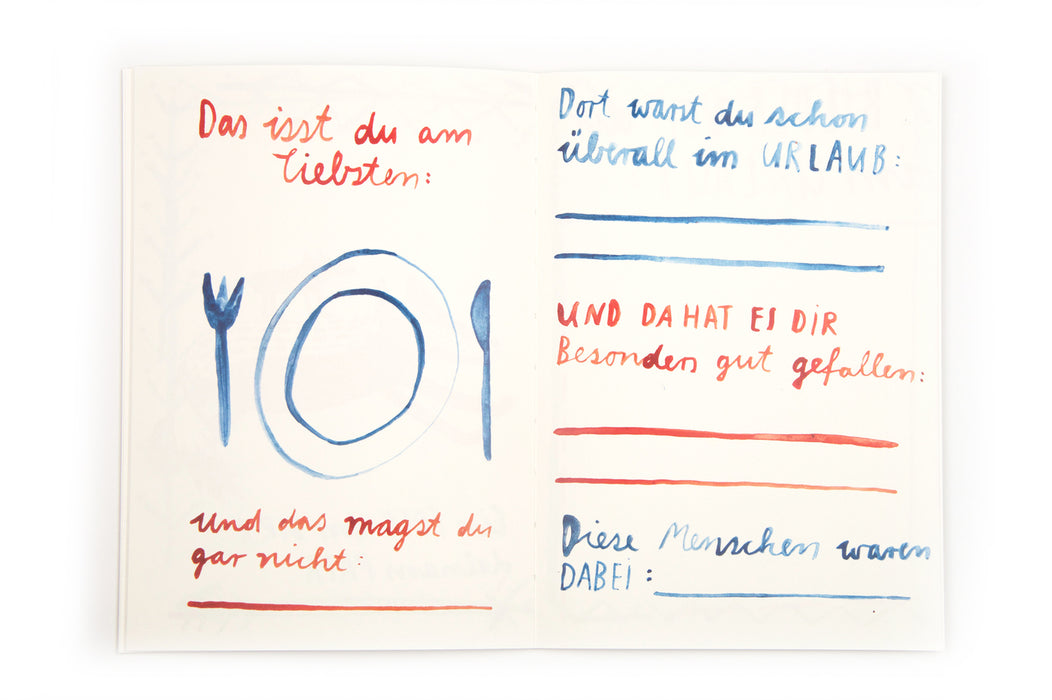 Das isst du am
liebsten:
und das magst du
gar nicht:
Dort warst du schon
überall im URLAUB:
UND DA HAT ES DIR
Besonders gut gefallen:
Diese Menschen waren
DABEI: